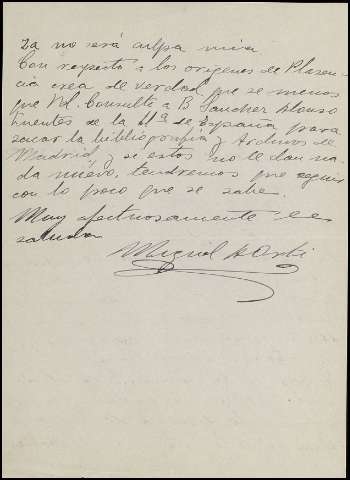 Ya no será culpa mia
Con respecto a los orígenes de Plasen-
cia crea de verdad que se menos
que Vd. Consulte a B Sanchez Alonso
Fuentes de la Hª de España para
sacar la bibliografia y Archivos de
Madrid, y si estos no le dan na-
da nuevo, tendremos que seguir
con lo poco que se sabe.
Muy afectuosamente le
saluda
Miguel